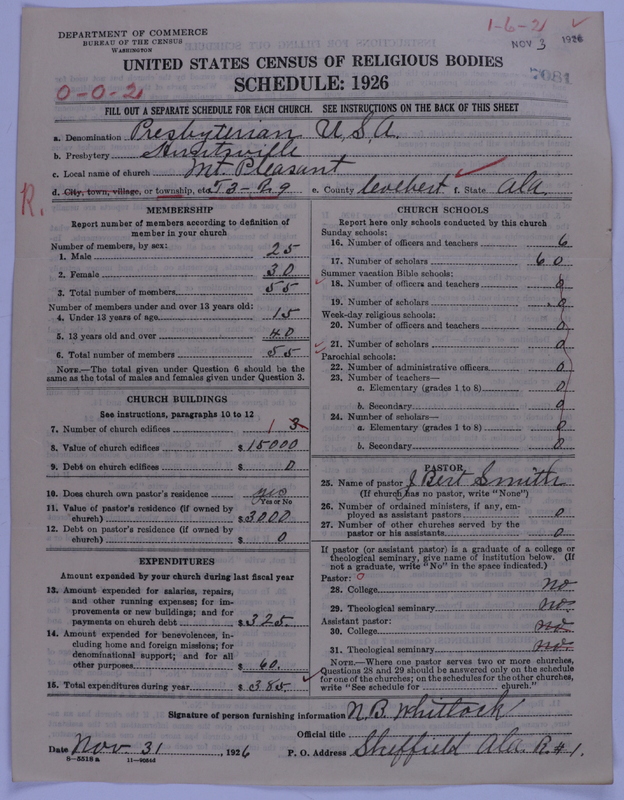 DEPARTMENT OF COMMERCE
BUREAU OF THE CENSUS
WASHINGTON
1-6-21 ✓
NOV 3 1926
7081
UNITED STATES CENSUS OF RELIGIOUS BODIES
SCHEDULE: 1926
0-0-21
FILL OUT A SEPARATE SCHEDULE FOR EACH CHURCH. SEE INSTRUCTIONS ON THE BACK OF THIS SHEET
a. Denomination Presbyterian U.S.A.
b. Presbytery Huntsville
c. Local name of church Mt Pleasant
d. City, town, village, or township, etc. T3-R9 e. County Colbert f. State Ala.
R.
MEMBERSHIP
Report number of members according to definition of member in your church
Number of members, by sex:
1. Male 25
2. Female 30
3. Total number of members 55
Number of members under and over 13 years old:
4. Under 13 years of age 15
5. 13 years old and over 40
6. Total number of members 55
NOTE.—The total given under Question 6 should be the same as the total of males and females given under Question 3.
CHURCH BUILDINGS
See instructions, paragraphs 10 to 12
7. Number of church edifices 1 3
8. Value of church edifices $15000
9. Debt on church edifices $ 0
10. Does church own pastor's residence yes
Yes or No
11. Value of pastor's residence (if owned by church) $3000
12. Debt on pastor's residence (if owned by church) $ 0
EXPENDITURES
Amount expended by your church during last fiscal year
13. Amount expended for salaries, repairs, and other running expenses; for improvements or new buildings; and for payments on church debt $325
14. Amount expended for benevolences, including home and foreign missions; for denominational support; and for all other purposes $ 60.
15. Total expenditures during year $ 385. ✓
CHURCH SCHOOLS
Report here only schools conducted by this church
Sunday schools:
16. Number of officers and teachers 6
17. Number of scholars 60
Summer vacation Bible schools:
18. Number of officers and teachers 0
19. Number of scholars 0
Week-day religious schools:
20. Number of officers and teachers 0
21. Number of scholars 0
Parochial schools:
22. Number of administrative officers 0
23. Number of teachers—
a. Elementary (grades 1 to 8) 0
b. Secondary 0
24. Number of scholars—
a. Elementary (grades 1 to 8) 0
b. Secondary 0
PASTOR
25. Name of pastor J Bert Smith
(If church has no pastor, write "None")
26. Number of ordained ministers, if any, employed as assistant pastors 0
27. Number of other churches served by the pastor or his assistants 0
If pastor (or assistant pastor) is a graduate of a college or theological seminary, give name of institution below. (If not a graduate, write "No" in the space indicated.)
Pastor: 0
28. College no
29. Theological seminary no.
Assistant pastor:
30. College no.
31. Theological seminary no.
NOTE.—Where one pastor serves two or more churches, Questions 28 and 29 should be answered only on the schedule for one of the churches; on the schedules for the other churches, write "See schedule for ........ church."
Signature of person furnishing information N.B. Whitlock
Official title
Date Nov 31, 1926 P. O. Address Sheffield Ala. R.#1.
8—5518 a 11—9054d